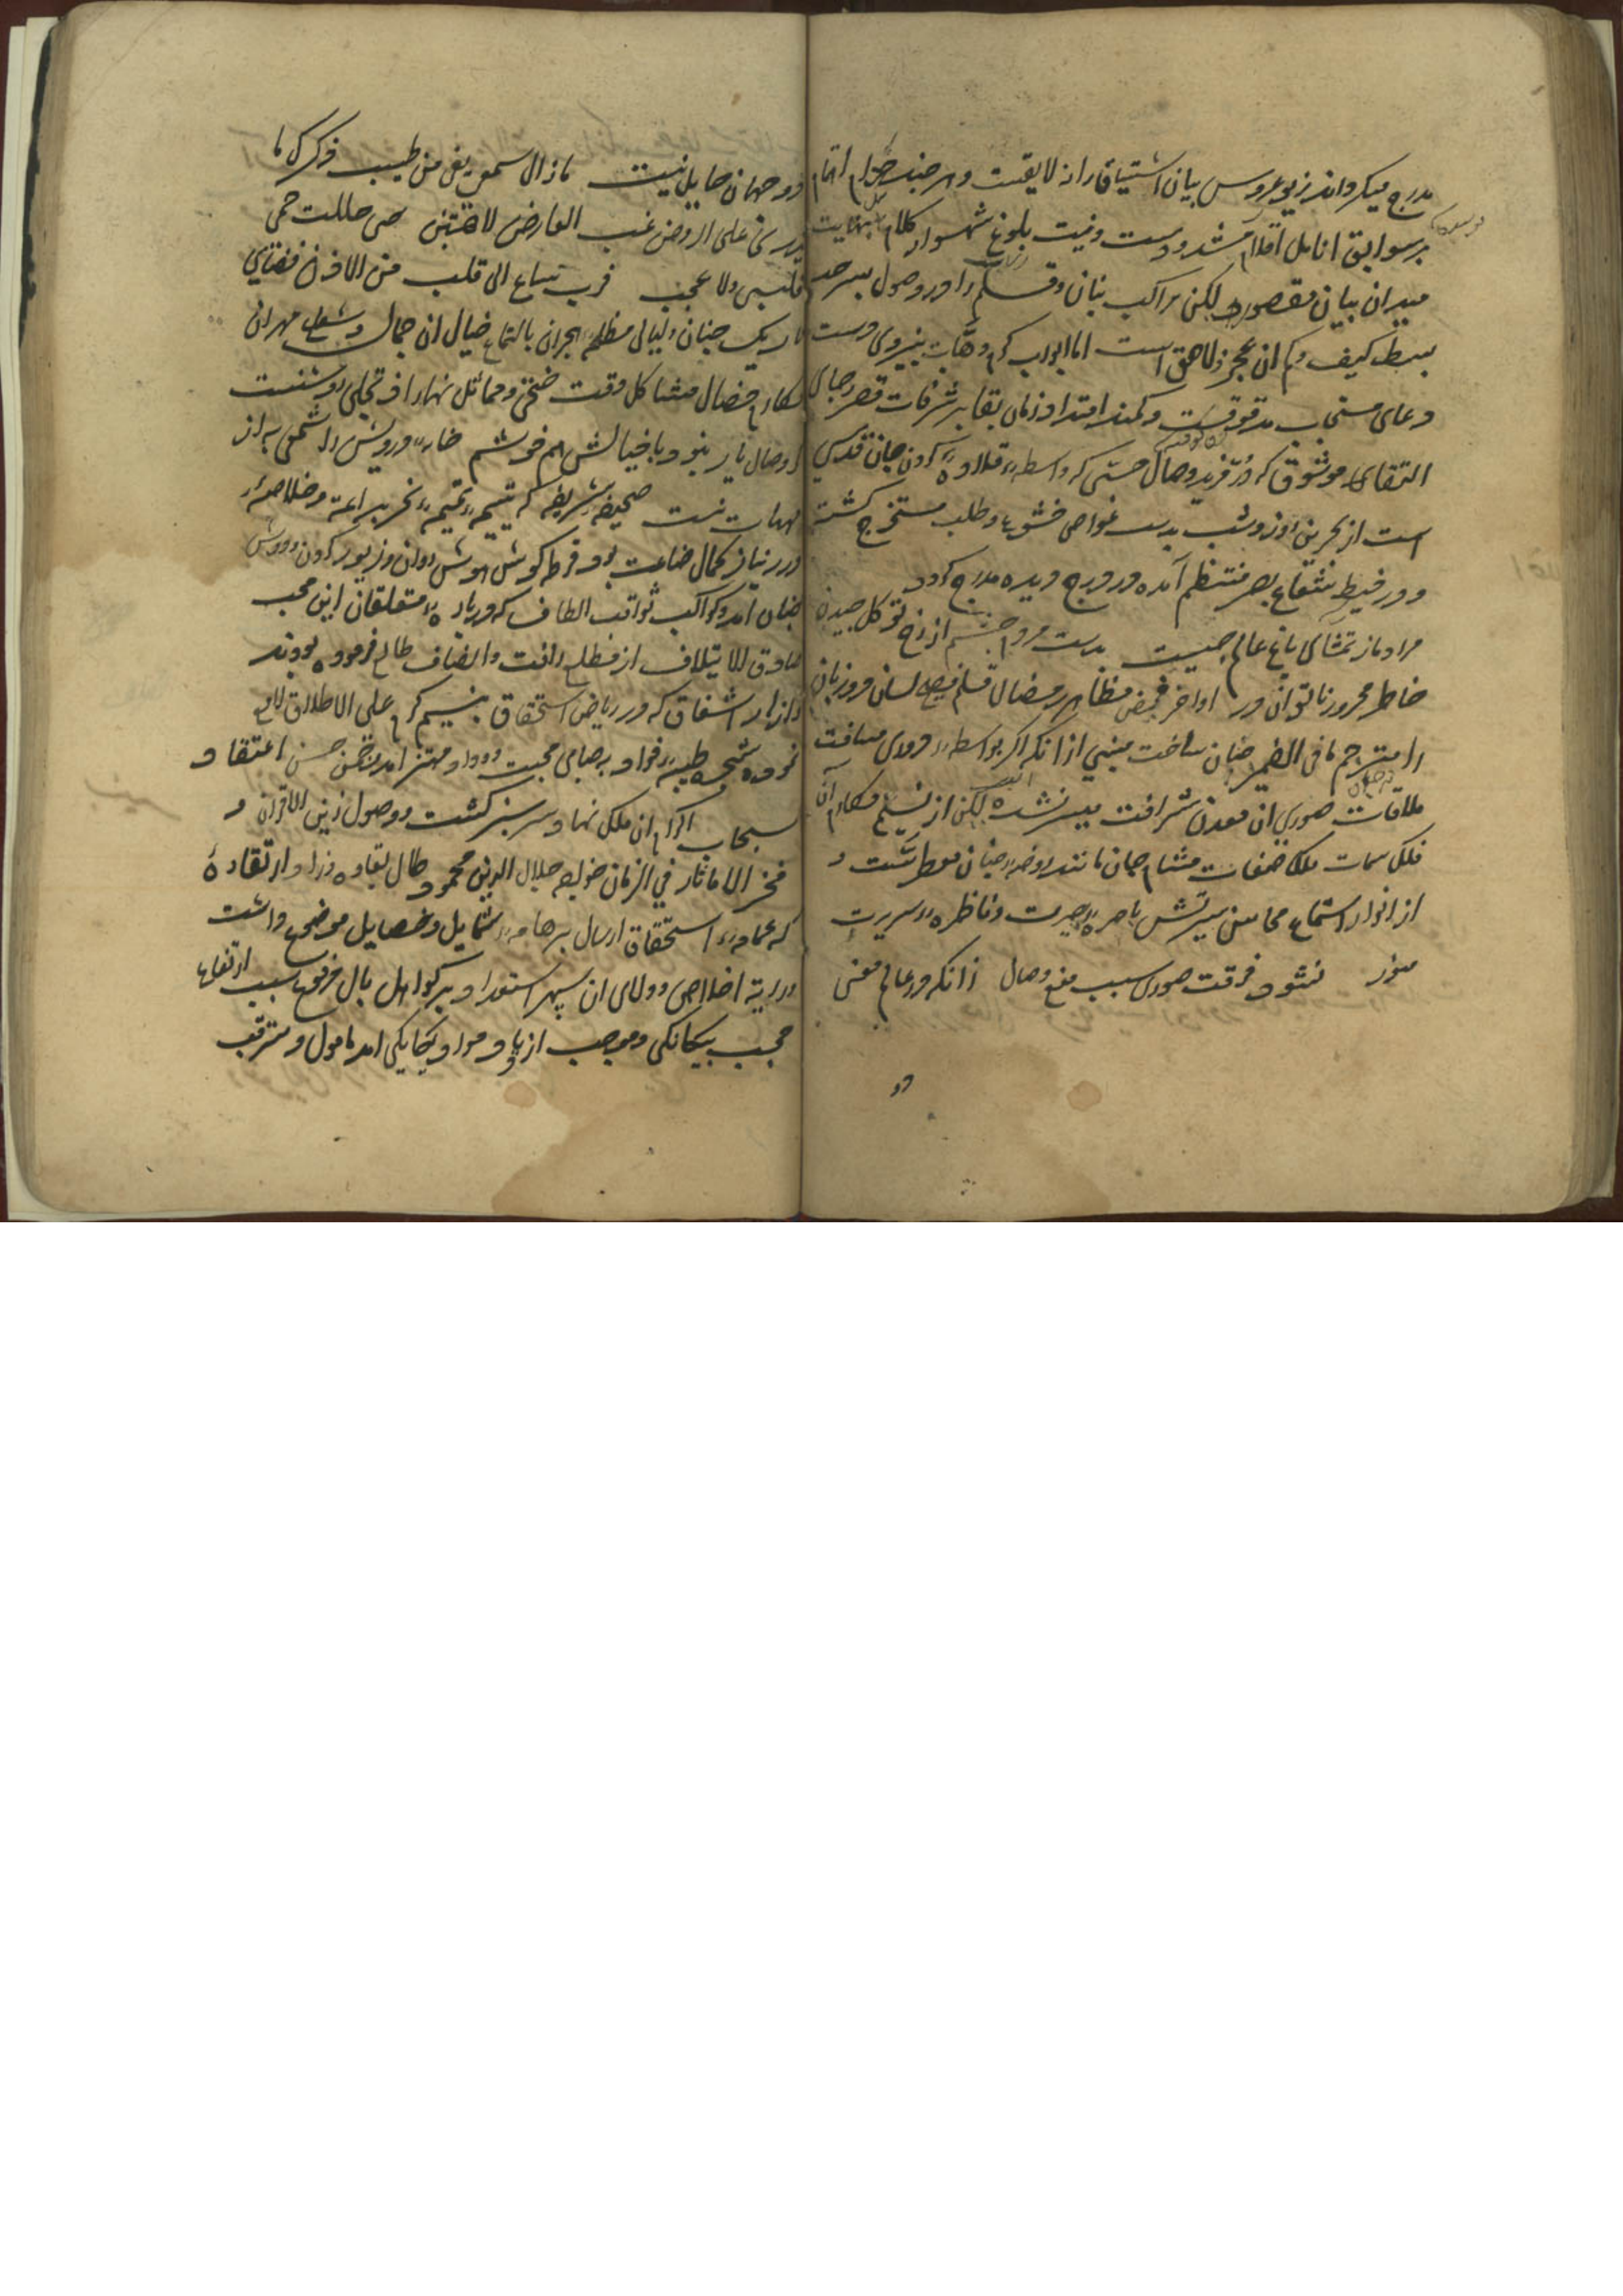 مدرج میکرداند زیور عروس بیان اشتیاق را نه لایقست و هر چند حزام اهتمام
بر سوابق انامل اقلام مشدودست و نیت بلوغ شهسوار کلام بنهایت
میدان بیان مقصور لیکن مراکب بنان و قلم را در وصول بسرحد
بسط کیف و کم ان عجز لاحق است اما ابواب کرم وهاب بنیروی دست
دعای مستجاب مدقوقست و کمند امتداد زمان بقا بر شرفات قصر رجای
التقای موثوق که در فرید وصال حسی که واسطه قلاده کردن جان قدسی
است از بحرین روز و شب بدست غواص خشوع و طلب مستخرج کشته
و در خیط شعاع بصر منتظم آمده در درج دیده مدرج کردد
مراد ما ز تماشای باغ عالم چیست بدست مردم چشم از رخ تو کل چیدن
خاطر محرور ناتوان در اواخر مظاهر رمضان قلم فصیح لسان دو زبان
را مترجم ما فی الضمیر جنان ساخت مبنی از انکه اکر بواسطه دوری مسافت
ملاقات صوری ان معدن شرافت میسر نشده لیکن از نسیم مکارم آن
فلک سمات ملک صفات مشام جان مانند روضه جنان معطرست و
از انوار استماع محاسن سیرتش باصره بصیرت و ناظره سریرت
منور نشود فرقت صوری سبب منع وصال زانکه در عالم معنی
دو
دو جهان حایل نیست مازال سمعی من طیب ذکرک ما
یزری علی الروض غب العارض الهتن حتی حللت حمی
قلبی ولا عجب فرب ساع الی قلب من الاذن فضای
تاریک جنان و لیالی مظلم هجران بالتماع خیال ان جمال و شعاع مهر ان
مکارم خصال مشاکل وقت ضحی و مماثل نهار اذ تجلی روشنست
کر وصال یار نبود با خیالش هم خوشم خانه درویش را شمعی به از
مهتاب نیست صحیفه شریفه که یتیمه تمیمه نحر براعه و خلاصه
درر نیاز کمال ضاعت بود قرطه کوش هوش روان و زیور کردن و دوش
جنان آمد و کواکب ثواقب الطاف که درباره متعلقان این محب
صادق الایتلاف از مطلع رافت و انصاف طالع فرموده بودند
و ازهار اشفاق که در ریاض استحقاق بنسیم کرم علی الاطلاق لایح
نموده شجره طیبه فواد بصبای محبت و وداد مهتز آمد و غصن حسن اعتقاد
بسحاب اکرام ان ملک نهاد سرسبز کشت و وصول زین الاقران و
فخر الاماثل فی الزمان خواجه جلال الدین محمود طال بقاوه و زاد ارتقاوه
که عمامه استحقاق ارسال بر هامه شمایل و خصایل موضوع داشت
و رایة اخلاص و ولای ان سپهر استعداد بر کواهل بال مرفوع سبب ارتفاع
حجب بیکانکی و موجب ازدیاد مواد یکانکی امد مامول و مترقب